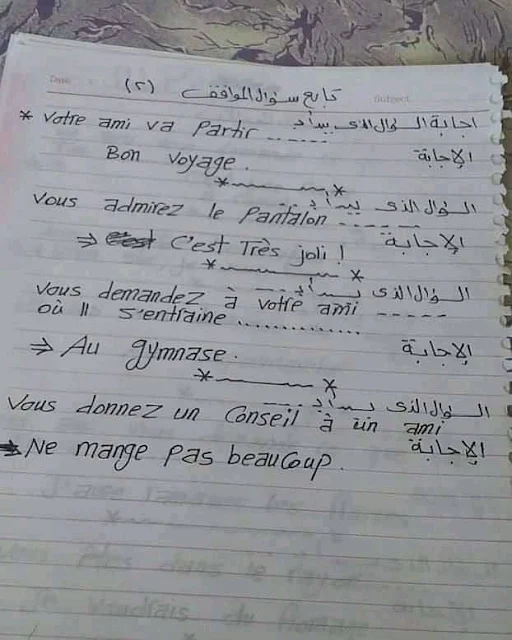 Date Subject
تابع سؤال المواقف (٢)
* Votre ami va Partir ...... اجابة السؤال الذى يبدأ بـ
Bon Voyage. الإجابة
*———*
Vous admirez le Pantalon ------ السؤال الذى يبدأ بـ
⇒ C'est Très joli ! الإجابة
*———*
Vous demandez à votre ami ----- السؤال الذى يبدأ بـ
où Il s'entraine .............
⇒ Au gymnase. الإجابة
*———*
Vous donnez un Conseil à un ami السؤال الذى يبدأ بـ
→ Ne mange pas beauCoup. الإجابة